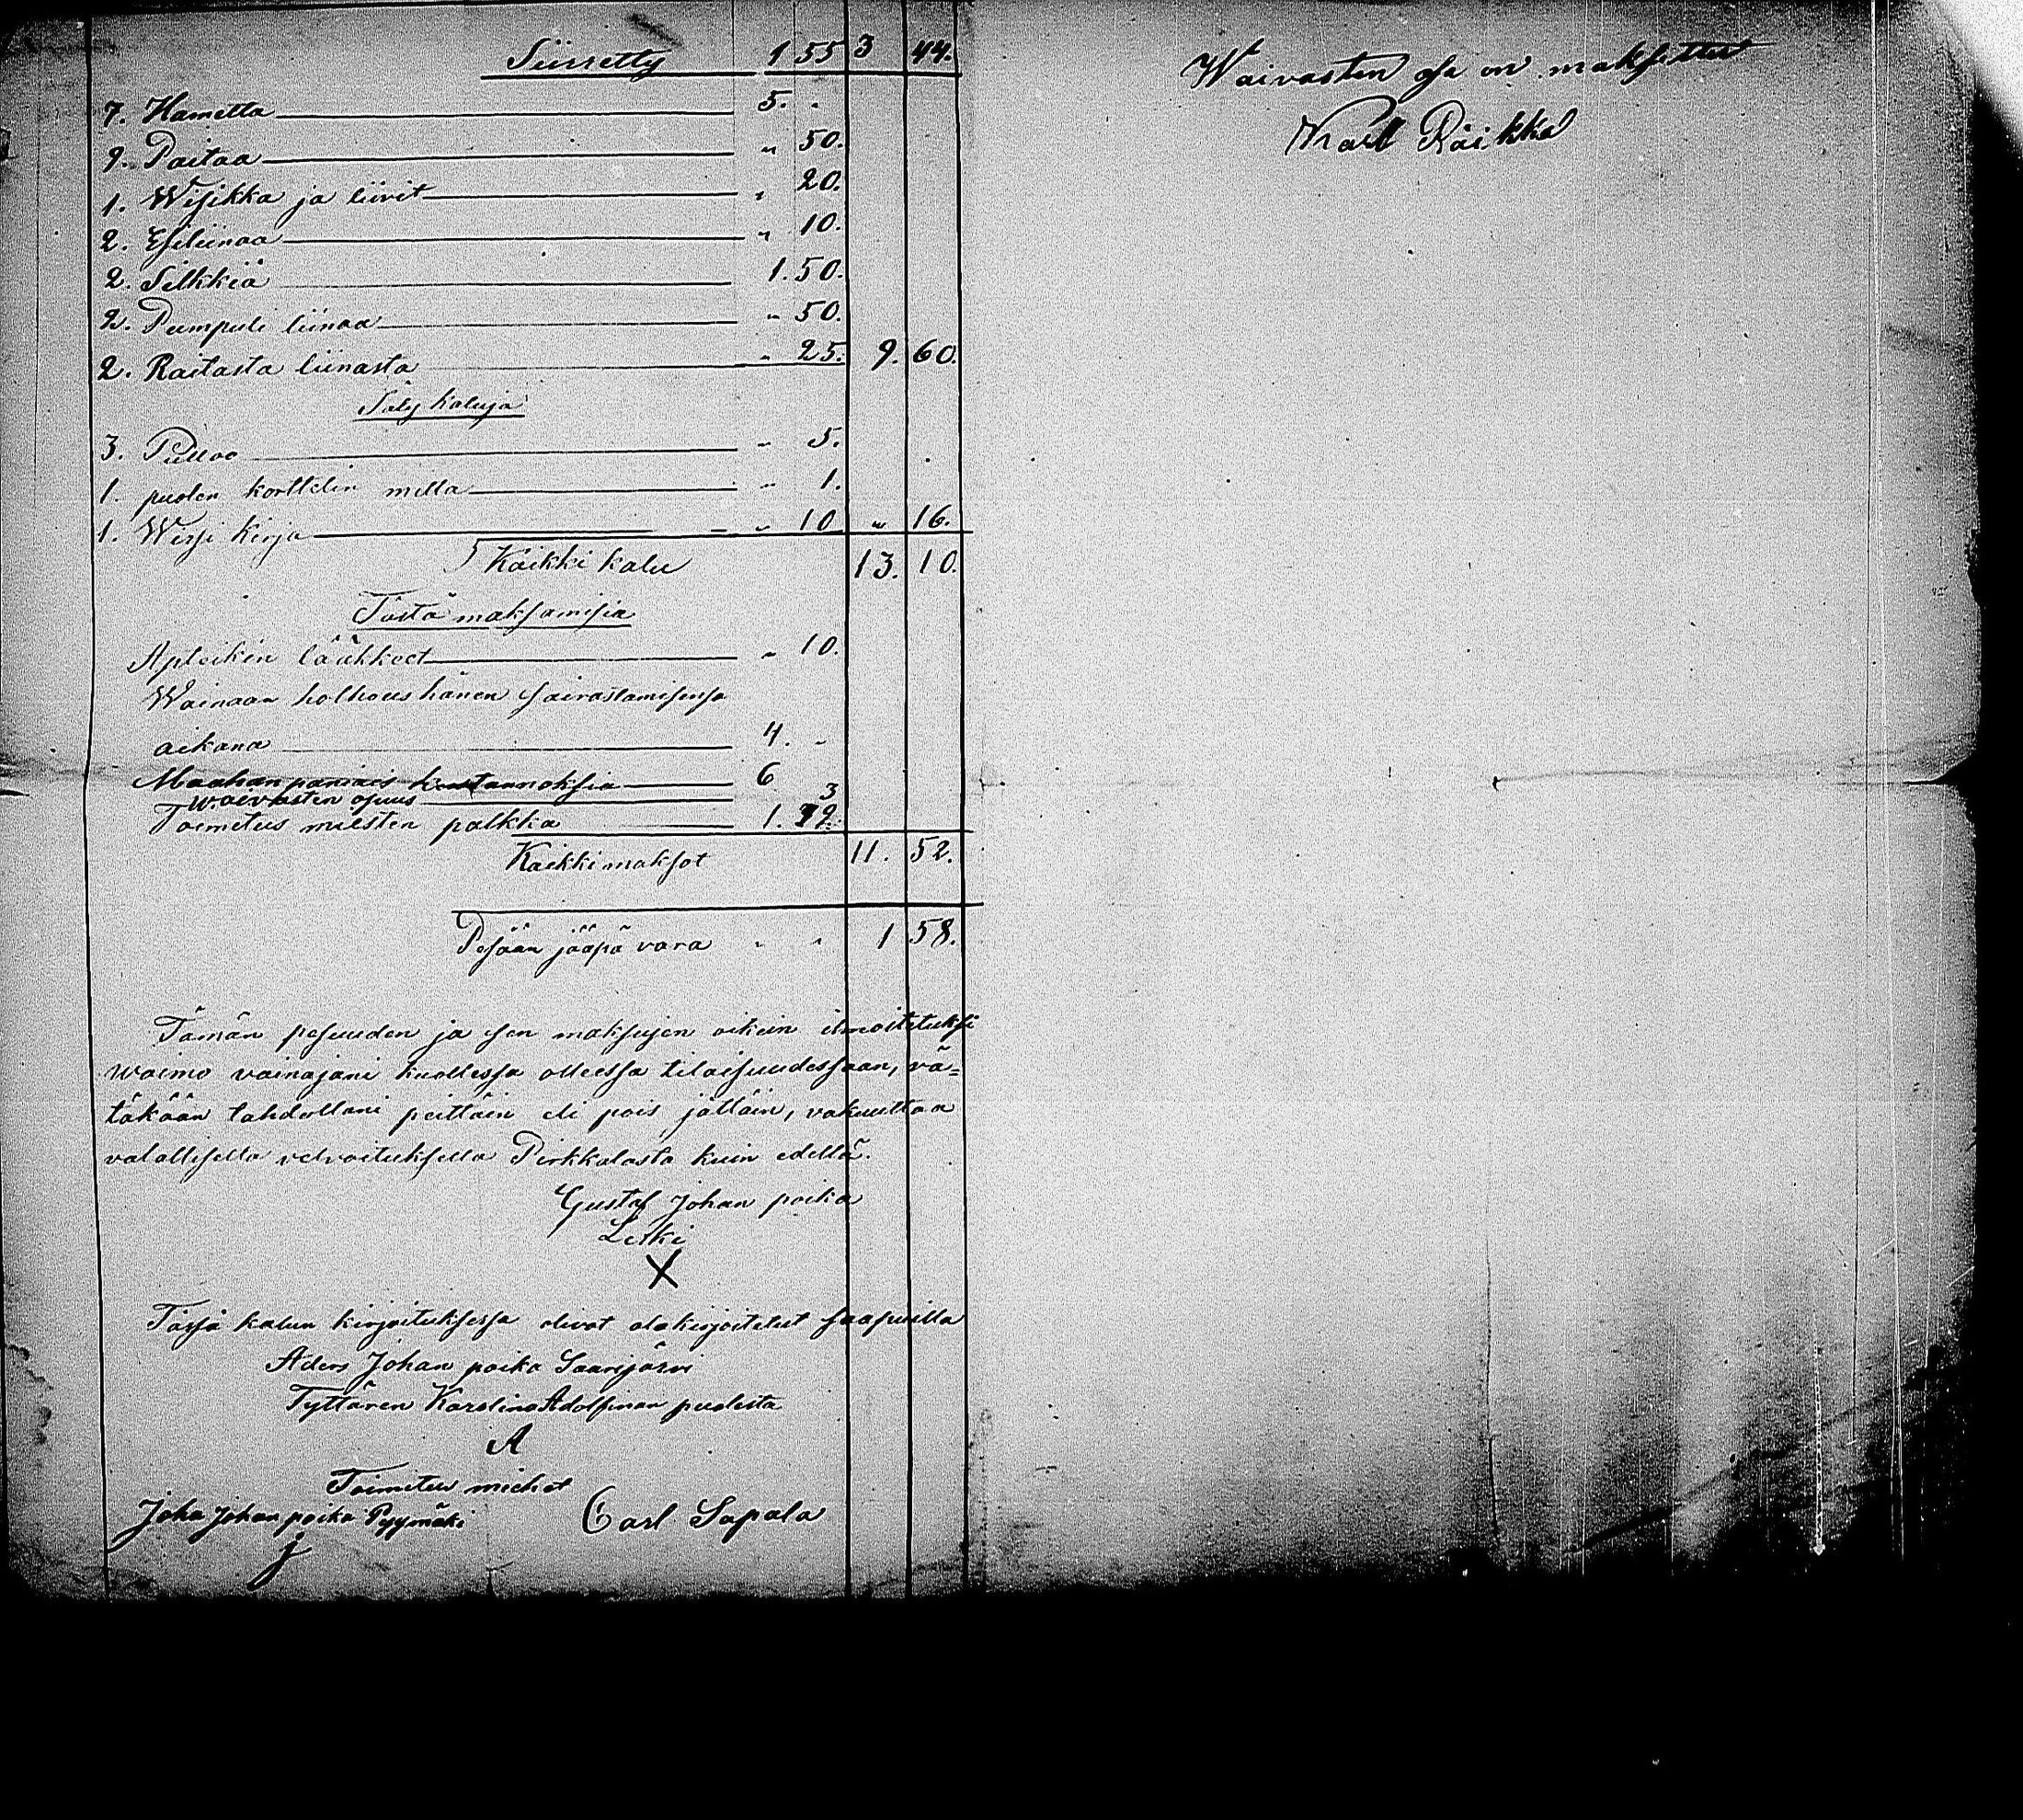 Siirretty 1 55 3 44.
7. Hametta 5. .
2. Paitaa " 50.
1. Wisikka ja liivit " 20.
2. Esiliinaa " 10.
2. Silkkiä 1. 50.
2. Pumpuli liinaa " 50.
2. Raitasta liinasta " 25. 9. 60.
Säly kaluja
3. Pulloo " 5.
1. puolen korttelin mitta " 1.
1. Wirsi kirja " 10 " 16.
Kaikki kalu 13. 10.
Tästä maksamisia
Apteikin lääkkeet " 10.
Wainaan holhous hänen sairastamisensa
aikana 4. "
Maahan paniais kustannoksia 6
Waivasten osuus 3
Toimetus miesten palkka 1.
Kaikki maksot 11. 52.
Pesään jääpä vara " " 1 58.
Tämän pesuuden ja sen maksujen oikein ilmoitetuksi
waimo vainajani kuollessa olleessa tilaisuudessaan, vä=
täkään tahdollani peittäin eli pois jättäin, vakuuttaa
valallisella velvoituksella Pirkkalasta kuin edellä.
Gustaf Johan poika
Leski
X
Tässä kalun kirjoituksessa olivat alakirjoitetut saapuilla
Aders Johan poika Saarijärvi
Tyttären Karolina Adolfinan puolesta
A
Toimetus miehet
Joha Johan poika Pyymäki Carl Sapala
J
Waivasten osa on maksettu
Karl Räikkä